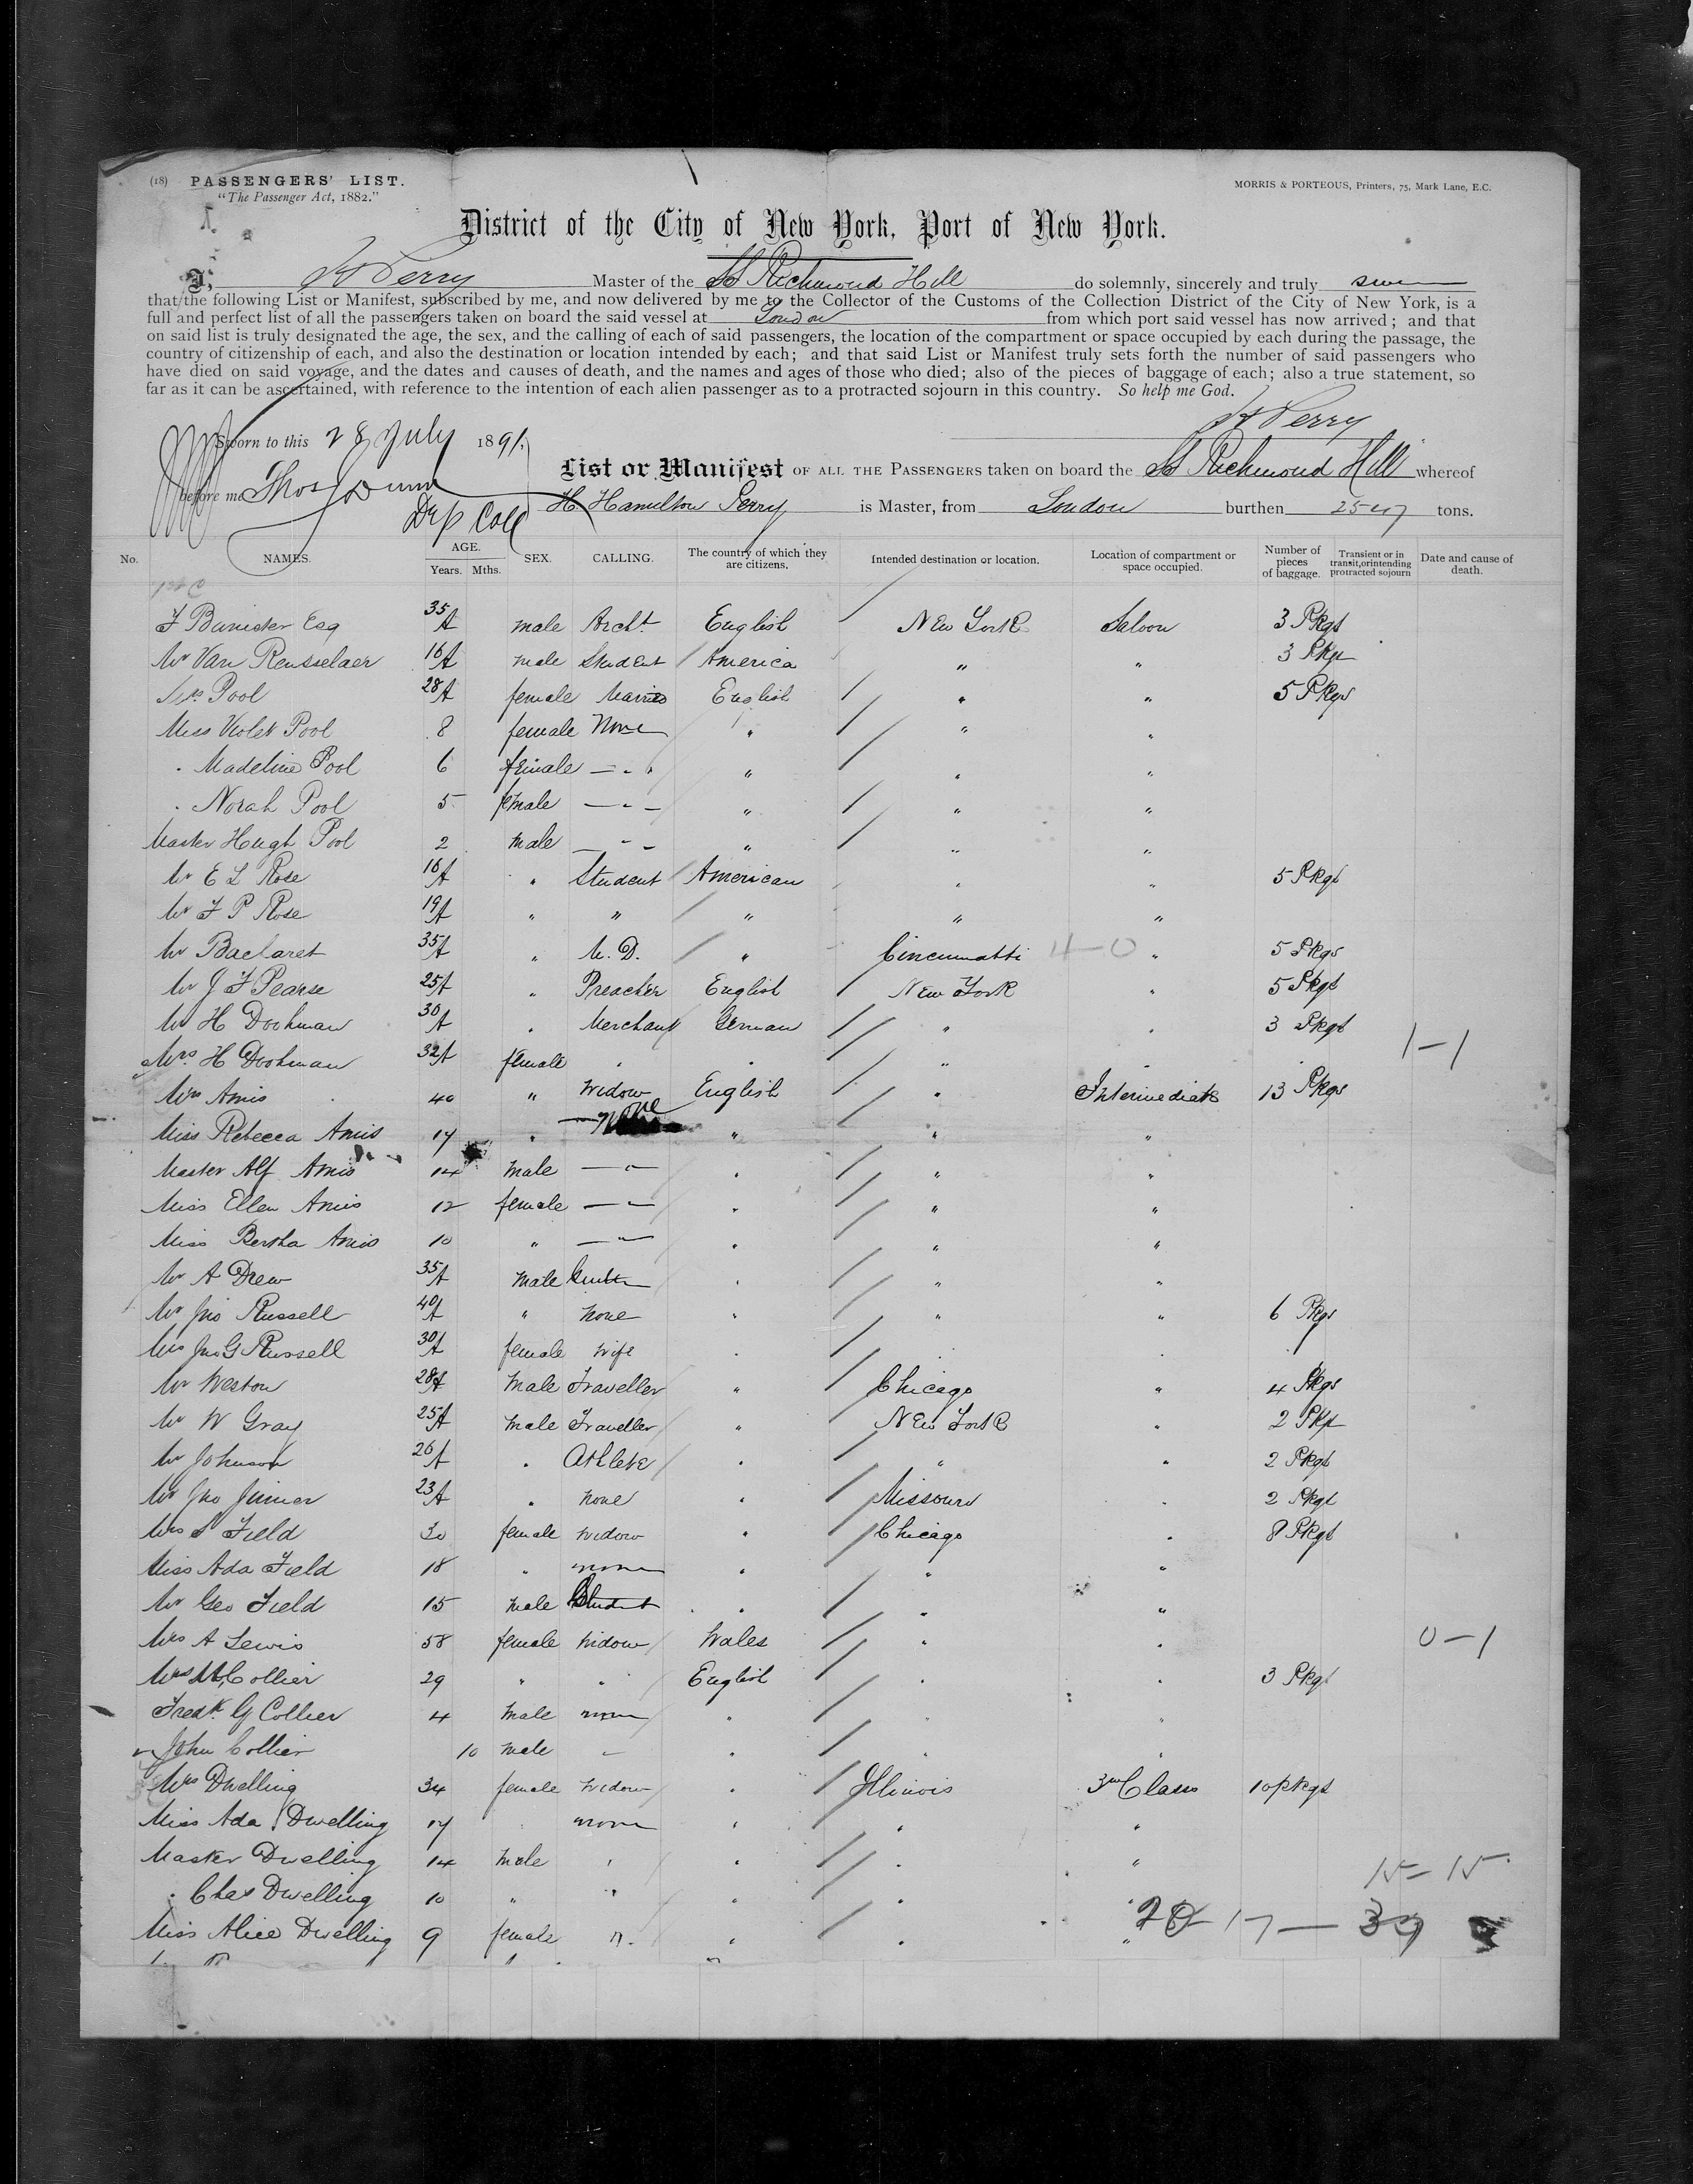 (18) PASSENGERS' LIST.
"The Passenger Act, 1882."
MORRIS & PORTEOUS, Printers, 75, Mark Lane, E.C.
District of the City of New York, Port of New York.
I, H Perry Master of the SS Richmond Hill do solemnly, sincerely and truly swear
that the following List or Manifest, subscribed by me, and now delivered by me to the Collector of the Customs of the Collection District of the City of New York, is a
full and perfect list of all the passengers taken on board the said vessel at London from which port said vessel has now arrived; and that
on said list is truly designated the age, the sex, and the calling of each of said passengers, the location of the compartment or space occupied by each during the passage, the
country of citizenship of each, and also the destination or location intended by each; and that said List or Manifest truly sets forth the number of said passengers who
have died on said voyage, and the dates and causes of death, and the names and ages of those who died; also of the pieces of baggage of each; also a true statement, so
far as it can be ascertained, with reference to the intention of each alien passenger as to a protracted sojourn in this country. So help me God.
H Perry
Sworn to this 28 July 1891.
List or Manifest OF ALL THE PASSENGERS taken on board the SS Richmond Hill whereof
before me Thos J Dunn
Dep Coll
H. Hamilton Perry is Master, from London burthen 2547 tons.
No. NAMES. AGE. Years. Mths. SEX. CALLING. The country of which they are citizens. Intended destination or location. Location of compartment or space occupied. Number of pieces of baggage. Transient or in transit, or intending protracted sojourn Date and cause of death.
1st C
F Banister Esq 35 A male Archt. English New York Saloon 3 Pkgs
Mr Van Rensselaer 16 A male Student America " " 3 Pkgs
Mrs Pool 28 A female Married English " " 5 Pkgs
Miss Violet Pool 8 female None " " "
" Madeline Pool 6 female — " " " "
" Norah Pool 5 female — " — " " "
Master Hugh Pool 2 male — " — " " "
Mr E L Rose 16 A " Student American " " 5 Pkgs
Mr F P Rose 19 A " " " " "
Mr Baclaret 35 A " M.D. " Cincinnatti 4—0 " 5 Pkgs
Mr J F Pearse 25 A " Preacher English New York " 5 Pkgs
Mr H Doohman 30 A " Merchant German " " 3 Pkgs
1—1
Mrs H Doohman 32 A female " " " " "
Mrs Amis 40 " Widow English " Intermediate 13 Pkgs
Miss Rebecca Amis 17 " None " " "
Master Alf Amis 14 male — " — " " "
Miss Ellen Amis 12 female — " — " " "
Miss Bertha Amis 10 " — " — " " "
Mr A Drew 35 A male " " "
Mr Jno Russell 40 A " none " " " 6 Pkgs
Mrs Jno G Russell 30 A female Wife " " " "
Mr Weston 28 A Male Traveller " Chicago " 4 Pkgs
Mr W Gray 25 A Male Traveller " New York " 2 Pkgs
Mr Johnson 26 A " Athlete " " " 2 Pkgs
Mr Jno 23 A " none " Missouri " 2 Pkgs
Mrs S Field 30 female Widow " Chicago " 8 Pkgs
Miss Ada Field 18 " none " " "
Mr Geo Field 15 male Student " " "
Mrs A Lewis 58 female Widow Wales " " 0—1
Mrs Collier 29 " " English " " 3 Pkgs
Fredk. G Collier 4 Male none " " "
John Collier 10 male " " " "
Mrs Dwelling 34 female Widow " Illinois 3rd Class 10 pkgs
Miss Ada Dwelling 17 " none " " "
Master Dwelling 14 male " " " "
15—15
" Chas Dwelling 10 " " " " "
20—17—39
Miss Alice Dwelling 9 female " " " "